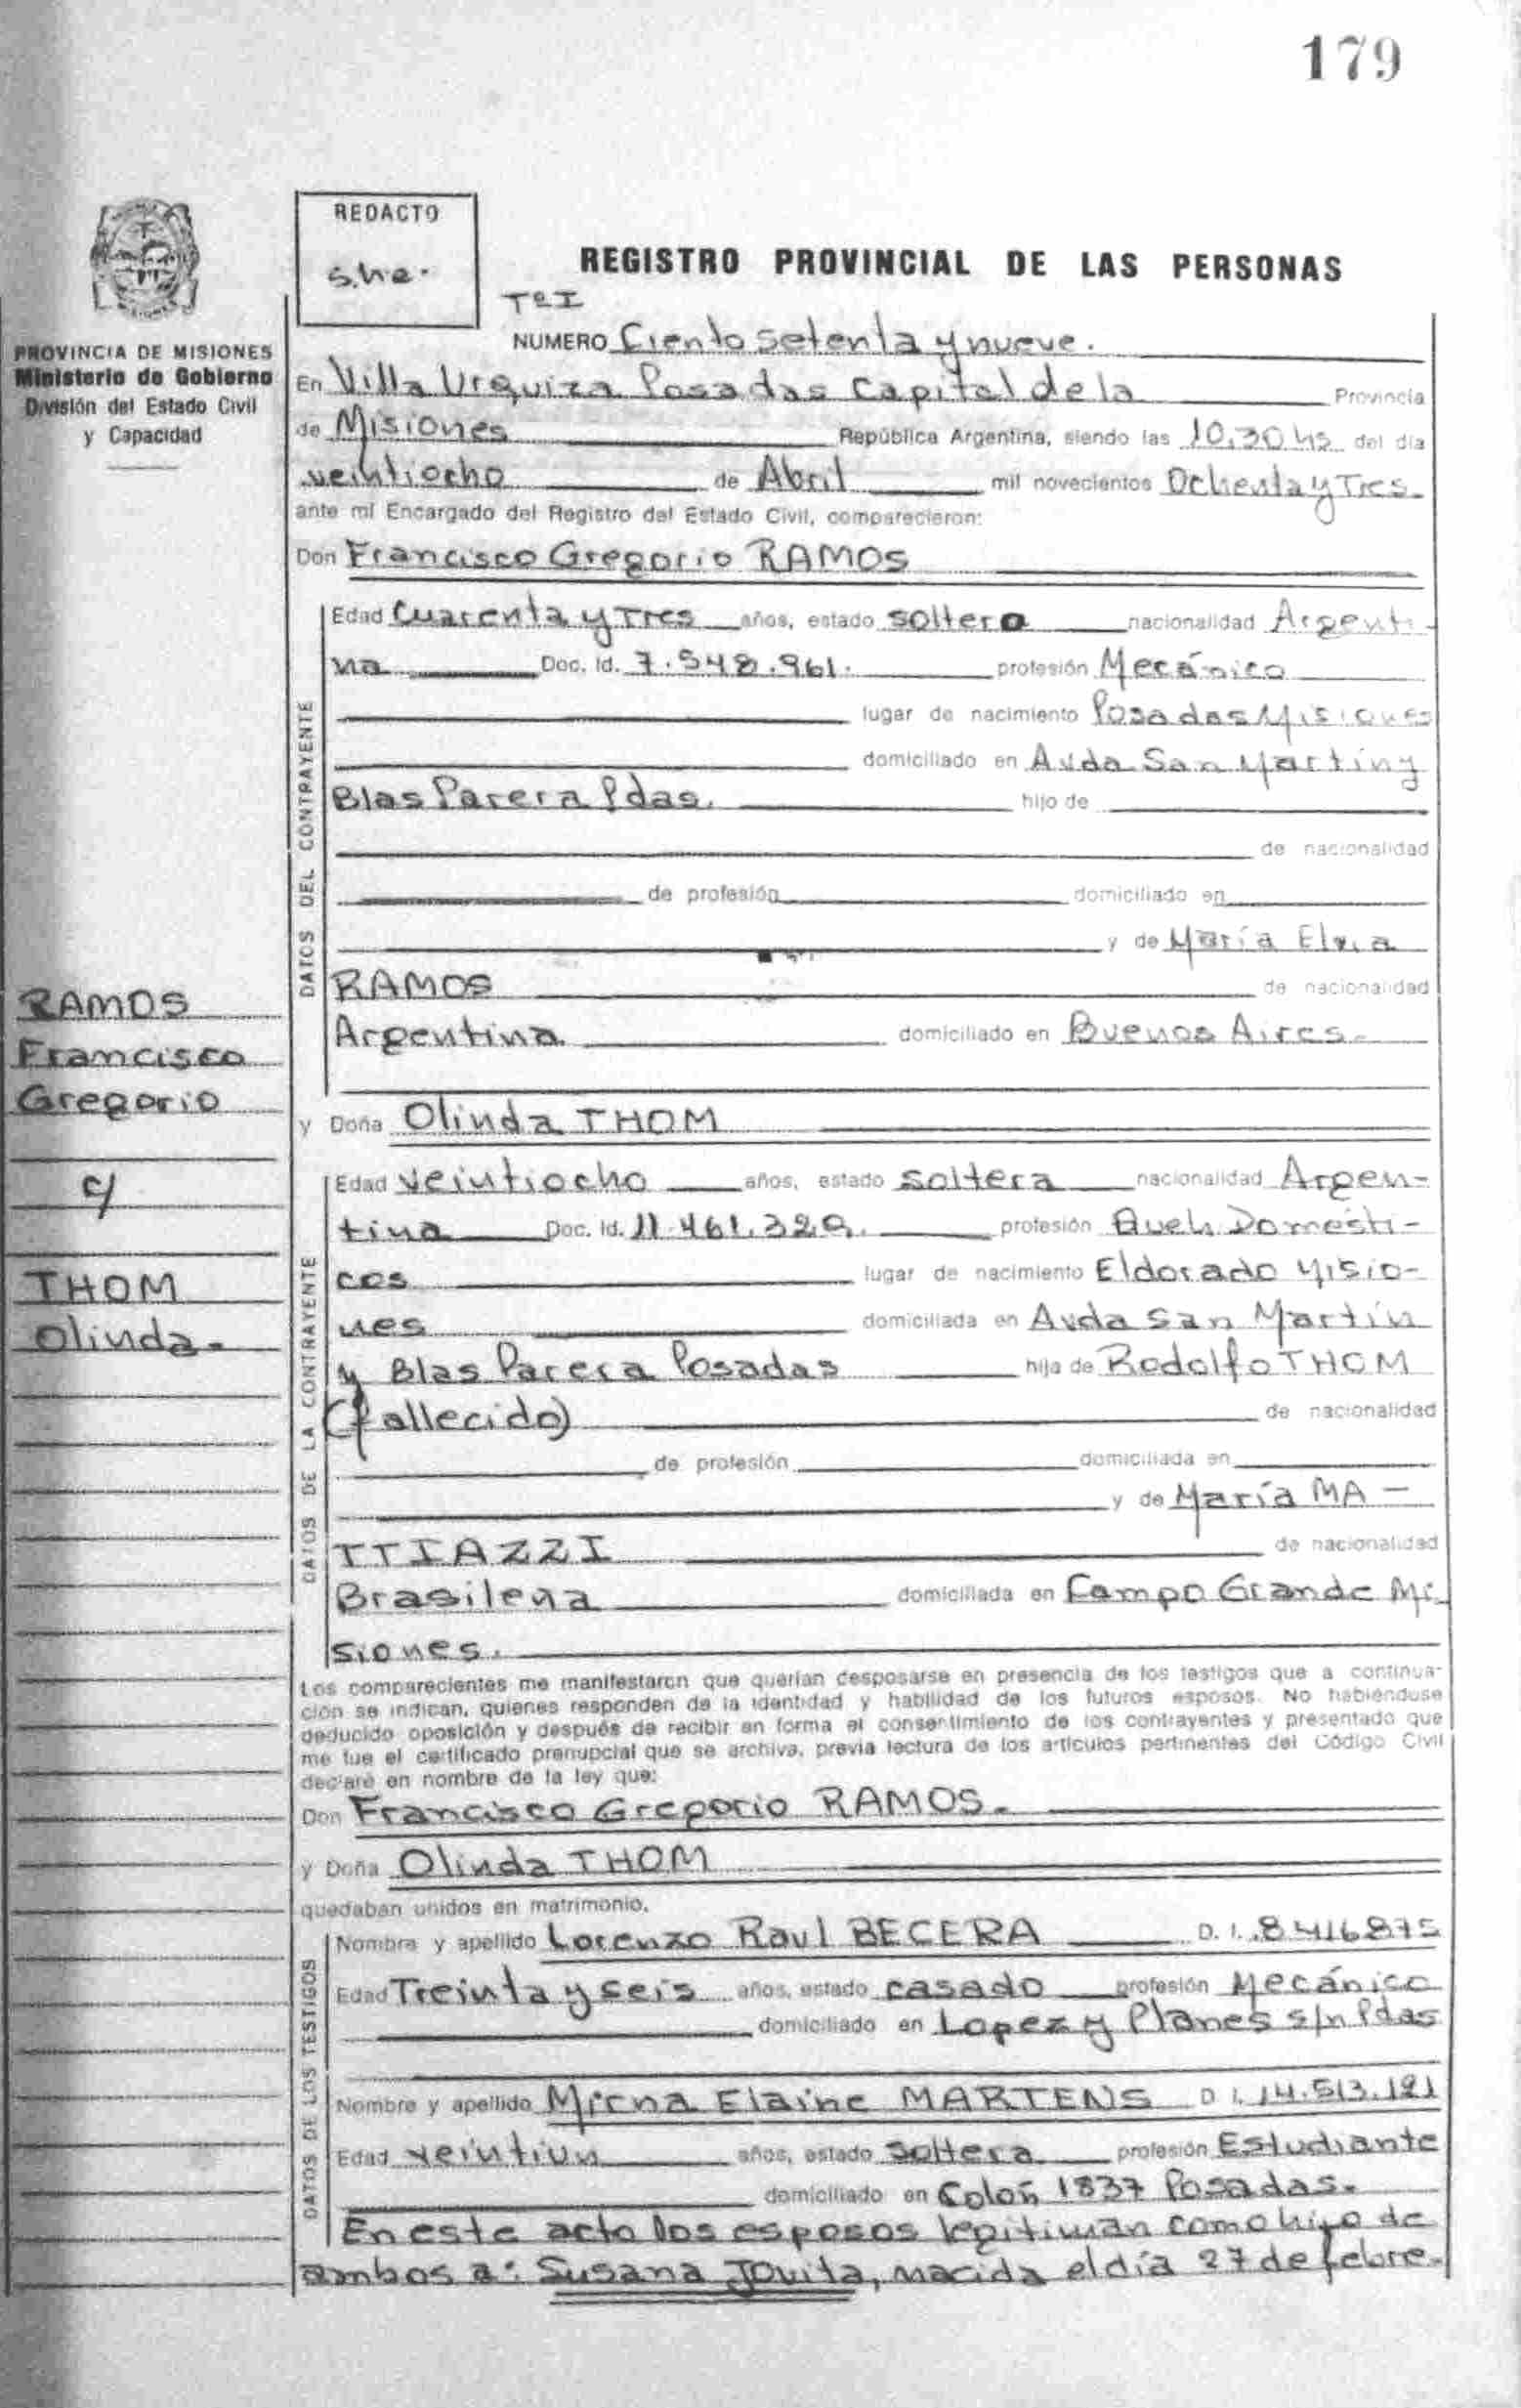 179
REDACTO
s.he.
REGISTRO PROVINCIAL DE LAS PERSONAS
PROVINCIA DE MISIONES
Ministerio de Gobierno
División del Estado Civil
y Capacidad
TºI
NUMERO Ciento setenta y nueve.
En Villa Urquiza Posadas Capital de la Provincia
de Misiones República Argentina, siendo las 10,30 hs del día
veintiocho de Abril mil novecientos Ochenta y Tres
ante mí Encargado del Registro del Estado Civil, comparecieron:
Don Francisco Gregorio RAMOS
DATOS DEL CONTRAYENTE
Edad Cuarenta y Tres años, estado soltero nacionalidad Argenti-
na Doc. Id. 7.548.961. profesión Mecánico
lugar de nacimiento Posadas Misiones
domiciliado en Avda San Martín y
Blas Parera Pdas. hijo de
de nacionalidad
de profesión domiciliado en
y de María Elvia
RAMOS de nacionalidad
Argentina domiciliado en Buenos Aires.
RAMOS
Francisco
Gregorio
c/
THOM
Olinda.
y Doña Olinda THOM
DATOS DE LA CONTRAYENTE
Edad veintiocho años, estado soltera nacionalidad Argen-
tina Doc. Id. 11.461.329. profesión Queh Domésti-
cos lugar de nacimiento Eldorado Misio-
nes domiciliada en Avda San Martín
y Blas Parera Posadas hija de Rodolfo THOM
(fallecido) de nacionalidad
de profesión domiciliada en
y de María MA-
TTIAZZI de nacionalidad
Brasileña domiciliada en Campo Grande Mi-
siones.
Los comparecientes me manifestaron que querían desposarse en presencia de los testigos que a continua-
ción se indican, quienes responden de la identidad y habilidad de los futuros esposos. No habiéndose
deducido oposición y después de recibir en forma el consentimiento de los contrayentes y presentado que
me fue el certificado prenupcial que se archiva, previa lectura de los artículos pertinentes del Código Civil
declaré en nombre de la ley que:
Don Francisco Gregorio RAMOS.
y Doña Olinda THOM
quedaban unidos en matrimonio.
DATOS DE LOS TESTIGOS
Nombre y apellido Lorenzo Raul BECERA D. I. 8416875
Edad Treinta y seis años, estado casado profesión Mecánico
domiciliado en Lopez y Planes s/n Pdas
Nombre y apellido Mirna Elaine MARTENS D. I. 14.513.121
Edad veintiun años, estado soltera profesión Estudiante
domiciliado en Colón 1837 Posadas.
En este acto los esposos legitiman como hijo de
ambos a: Susana Jovita, nacida el día 27 de febre-